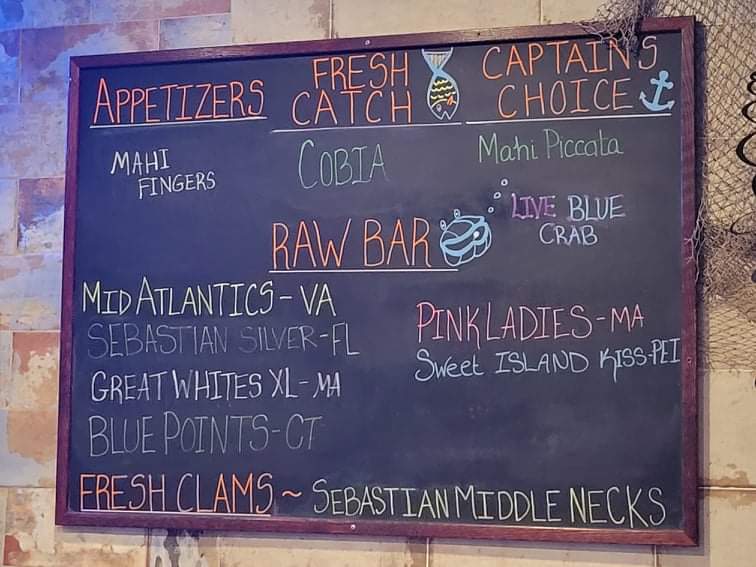 APPETIZERS
FRESH
CATCH
CAPTAIN'S
CHOICE
MAHI
FINGERS
COBIA
Mahi Piccata
LIVE BLUE
CRAB
RAW BAR
MID ATLANTICS - VA
SEBASTIAN SILVER - FL
GREAT WHITES XL - MA
BLUE POINTS - CT
PINK LADIES - MA
Sweet ISLAND KISS - PEI
FRESH CLAMS ~ SEBASTIAN MIDDLE NECKS